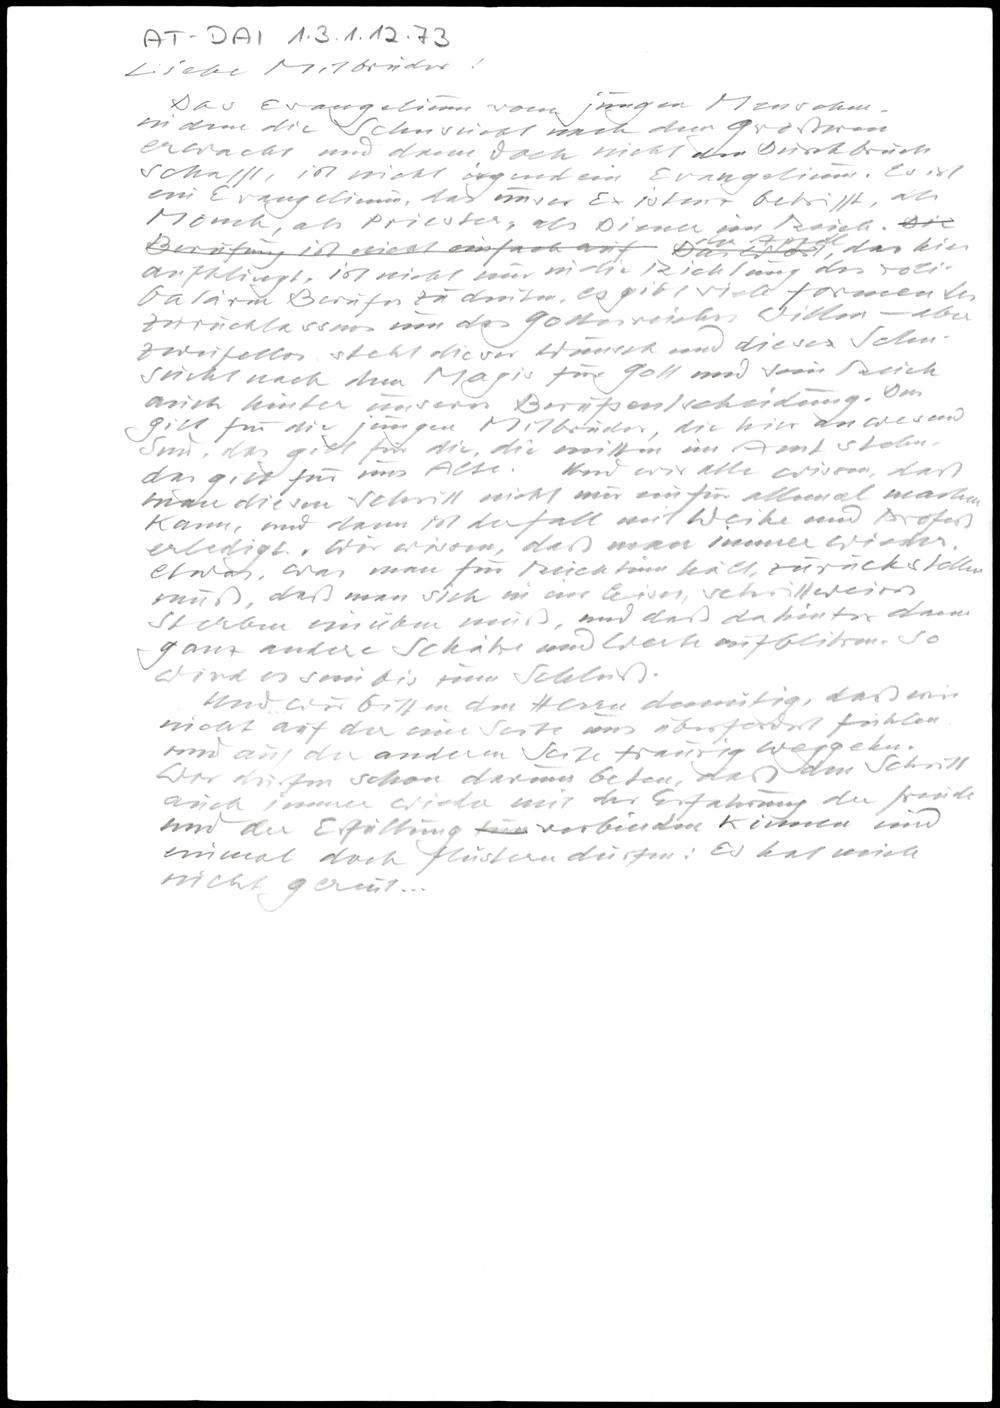 AT-DAI 1.3.1.12.73
Liebe Mitbrüder!
Das Evangelium vom jungen Menschen,
in dem die Sehnsucht nach dem Größeren
erwacht und dann doch nicht den Durchbruch
schafft, ist nicht irgendein Evangelium. Es ist
ein Evangelium, das unser Existenz betrifft, als
Mönch, als Priester, als Diener im Reich. Die
Berufung ist nicht einfach auf Das Wort, das hier
aufklingt, ist nicht nur in die Richtung des
Berufes zu deuten, es gibt viele Formen des
Zurücklassens um des Gottesreiches Willen – aber
zweifellos steht dieser Wunsch und diese Sehn-
sucht nach dem Magis für Gott und sein Reich
auch hinter unserer Berufsentscheidung. Das
gilt für die jungen Mitbrüder, die hier anwesend
sind, das gilt für die, die mitten im Amt stehn.
das gilt für uns Alte. Und wir alle wissen, daß
man diesen Schritt nicht nur ein für allemal machen
kann, und dann ist der Fall mit Weihe und Profeß
erledigt. Wir wissen, daß man immer wieder
etwas, was man für Reichtum hält, zurückstellen
muß, daß man sich in ein schrittweises
Sterben einüben muß, und daß dahinter dann
ganz andere Schätze und Werte aufblühen. So
wird es sein bis zum Schluß.
Und wir bitten den Herrn demütig, daß wir
nicht auf der einen Seite uns überfordert fühlen
und auf der anderen Seite traurig weggehn.
Wir dürfen schon darum beten, daß den Schritt
auch immer wieder mit der Erfahrung der Freude
und der Erfüllung verbinden können und
einmal doch flüstern dürfen: Es hat mich
nicht gereut...